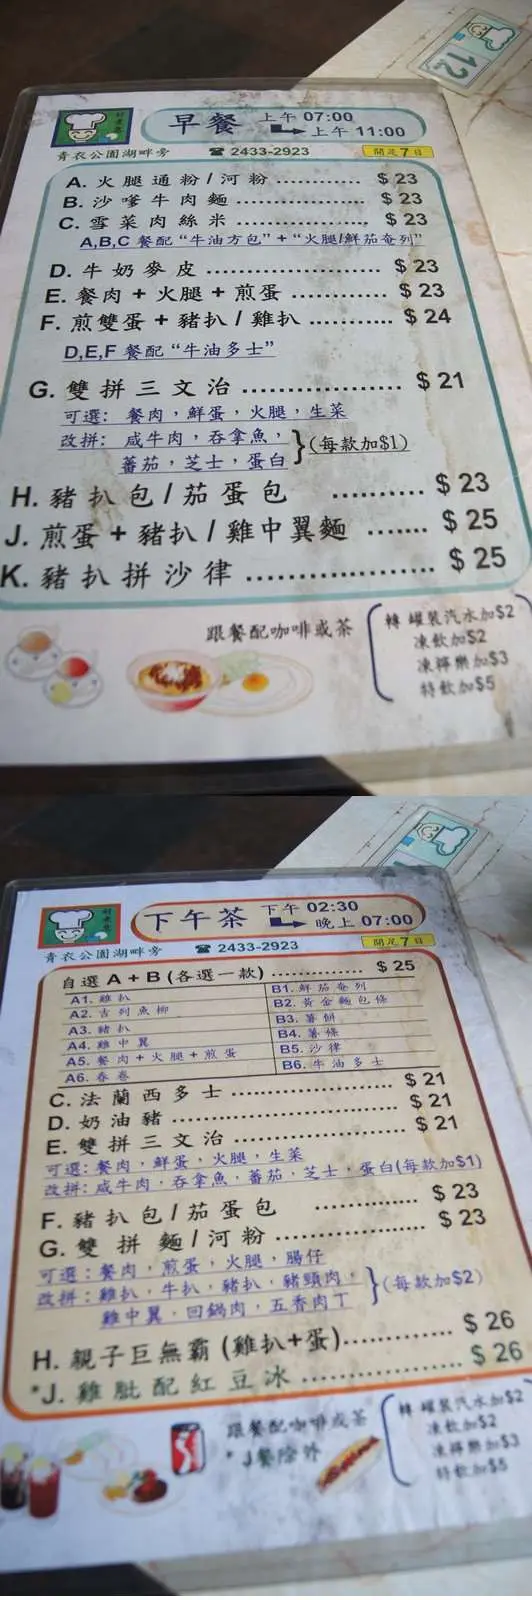 12
早餐 上午 07:00
上午 11:00
青衣公園湖畔旁 ☎ 2433-2923 開足7日
A. 火腿通粉 / 河粉 ............ $ 23
B. 沙嗲牛肉麵 .................. $ 23
C. 雪菜肉絲米 .................. $ 23
A,B,C 餐配 “牛油方包” + “火腿/鮮茄奄列”
D. 牛奶麥皮 ........................ $ 23
E. 餐肉 + 火腿 + 煎蛋 ............. $ 23
F. 煎雙蛋 + 豬扒 / 雞扒 .......... $ 24
D,E,F 餐配 “牛油多士”
G. 雙拼三文治 ...................... $ 21
可選: 餐肉，鮮蛋，火腿，生菜
改拼: 咸牛肉，吞拿魚，
蕃茄，芝士，蛋白 (每款加$1)
H. 豬扒包 / 茄蛋包 .......... $ 23
J. 煎蛋 + 豬扒 / 雞中翼麵 ....... $ 25
K. 豬扒拼沙律 ..................... $ 25
跟餐配咖啡或茶
轉 罐裝汽水加$2
凍飲加$2
凍檸樂加$3
特飲加$5
下午茶 下午 02:30
晚上 07:00
青衣公園湖畔旁 ☎ 2433-2923 開足7日
自選 A + B (各選一款) .............. $ 25
A1. 雞扒 B1. 鮮茄奄列
A2. 吉列魚柳 B2. 黃金麵包條
A3. 豬扒 B3. 薯餅
A4. 雞中翼 B4. 薯條
A5. 餐肉 + 火腿 + 煎蛋 B5. 沙律
A6. 春卷 B6. 牛油多士
C. 法蘭西多士 ........................ $ 21
D. 奶油豬 .............................. $ 21
E. 雙拼三文治 ........................ $ 21
可選: 餐肉，鮮蛋，火腿，生菜
改拼: 咸牛肉，吞拿魚，蕃茄，芝士，蛋白(每款加$1)
F. 豬扒包 / 茄蛋包 ............... $ 23
G. 雙拼麵 / 河粉 .................. $ 23
可選: 餐肉，煎蛋，火腿，腸仔
改拼: 雞扒，牛扒，豬扒，豬頸肉， (每款加$2)
雞中翼，回鍋肉，五香肉丁
H. 親子巨無霸 (雞扒+蛋)............. $ 26
*J. 雞肶配紅豆冰 ................... $ 26
跟餐配咖啡或茶
* J餐除外
轉 罐裝汽水加$2
凍飲加$2
凍檸樂加$3
特飲加$5